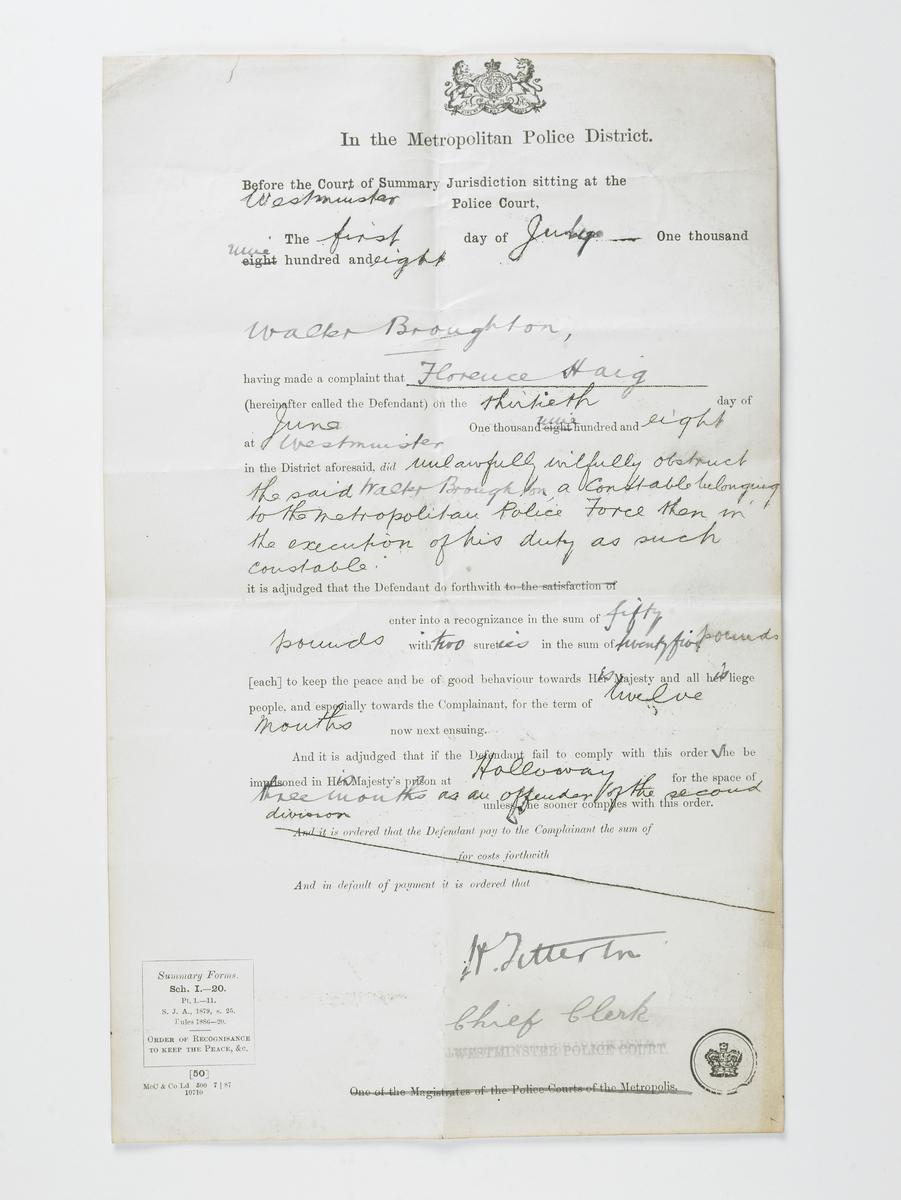 In the Metropolitan Police District.
Before the Court of Summary Jurisdiction sitting at the
Westminster Police Court,
The first day of July One thousand
nine
eight hundred and eight
Walter Broughton,
having made a complaint that Florence Haig
(hereinafter called the Defendant) on the thirtieth day of
June One thousand nine eight hundred and eight
at Westminster
in the District aforesaid, did unlawfully wilfully obstruct
the said Walter Broughton, a Constable belonging
to the Metropolitan Police Force then in
the execution of his duty as such
constable.
it is adjudged that the Defendant do forthwith to the satisfaction of
enter into a recognizance in the sum of fifty
pounds with two sureties in the sum of twenty five pounds
[each] to keep the peace and be of good behaviour towards His Majesty and all his liege
people, and especially towards the Complainant, for the term of twelve
months now next ensuing.
And it is adjudged that if the Defendant fail to comply with this order she be
imprisoned in His Majesty's prison at Holloway for the space of
three months as an offender of the second
division unless she sooner complies with this order.
And it is ordered that the Defendant pay to the Complainant the sum of
for costs forthwith
And in default of payment it is ordered that
H. Titterton
Chief Clerk
WESTMINSTER POLICE COURT.
One of the Magistrates of the Police Courts of the Metropolis.
Summary Forms.
Sch. I.—20.
Pt. I.—11.
S. J. A., 1879, s. 25.
Rules 1886—20.
ORDER OF RECOGNISANCE
TO KEEP THE PEACE, &c.
[50]
McC & Co Ld 500 7 | 87
10710